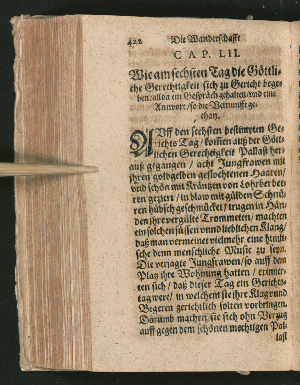 422 Die Wanderschafft
CAP. LII.
Wie am sechsten Tag die Göttli-
che Gerechtigkeit sich zu Gericht bege-
ben / allda ein Gespräch gehalten / vnd eine
Antwort / so die Vernunfft ge-
than.
AVff den sechsten bestimpten Ge-
richts Tag / kommen auß der Gött-
lichen Gerechtigkeit Pallast her-
auß gegangen / acht Jungfrawen mit
jhren goldgelben geflochtenen Haaren /
vnd schön mit Kräntzen von Lohrber bee-
ren geziert / in blaw mit gülden Schnü-
ren hübsch geschmücket / trugen in Hän-
den jhre vergülte Trommeten / machten
ein solchen süssen vnnd lieblichen Klang /
daß man vermeinet viel mehr eine himli-
sche denn menschliche Music zu seyn.
Die verjagte Jungfrawen / so auff dem
Platz jhre Wohnung hatten / erinner-
ten sich / daß dieser Tag ein Gerichts-
tag were / in welchem sie jhre Klag vnnd
Begeren gerichtlich solten vorbringen.
Darumb machten sie sich ohn Verzug
auff gegen dem schönen mechtigen Pal-
last